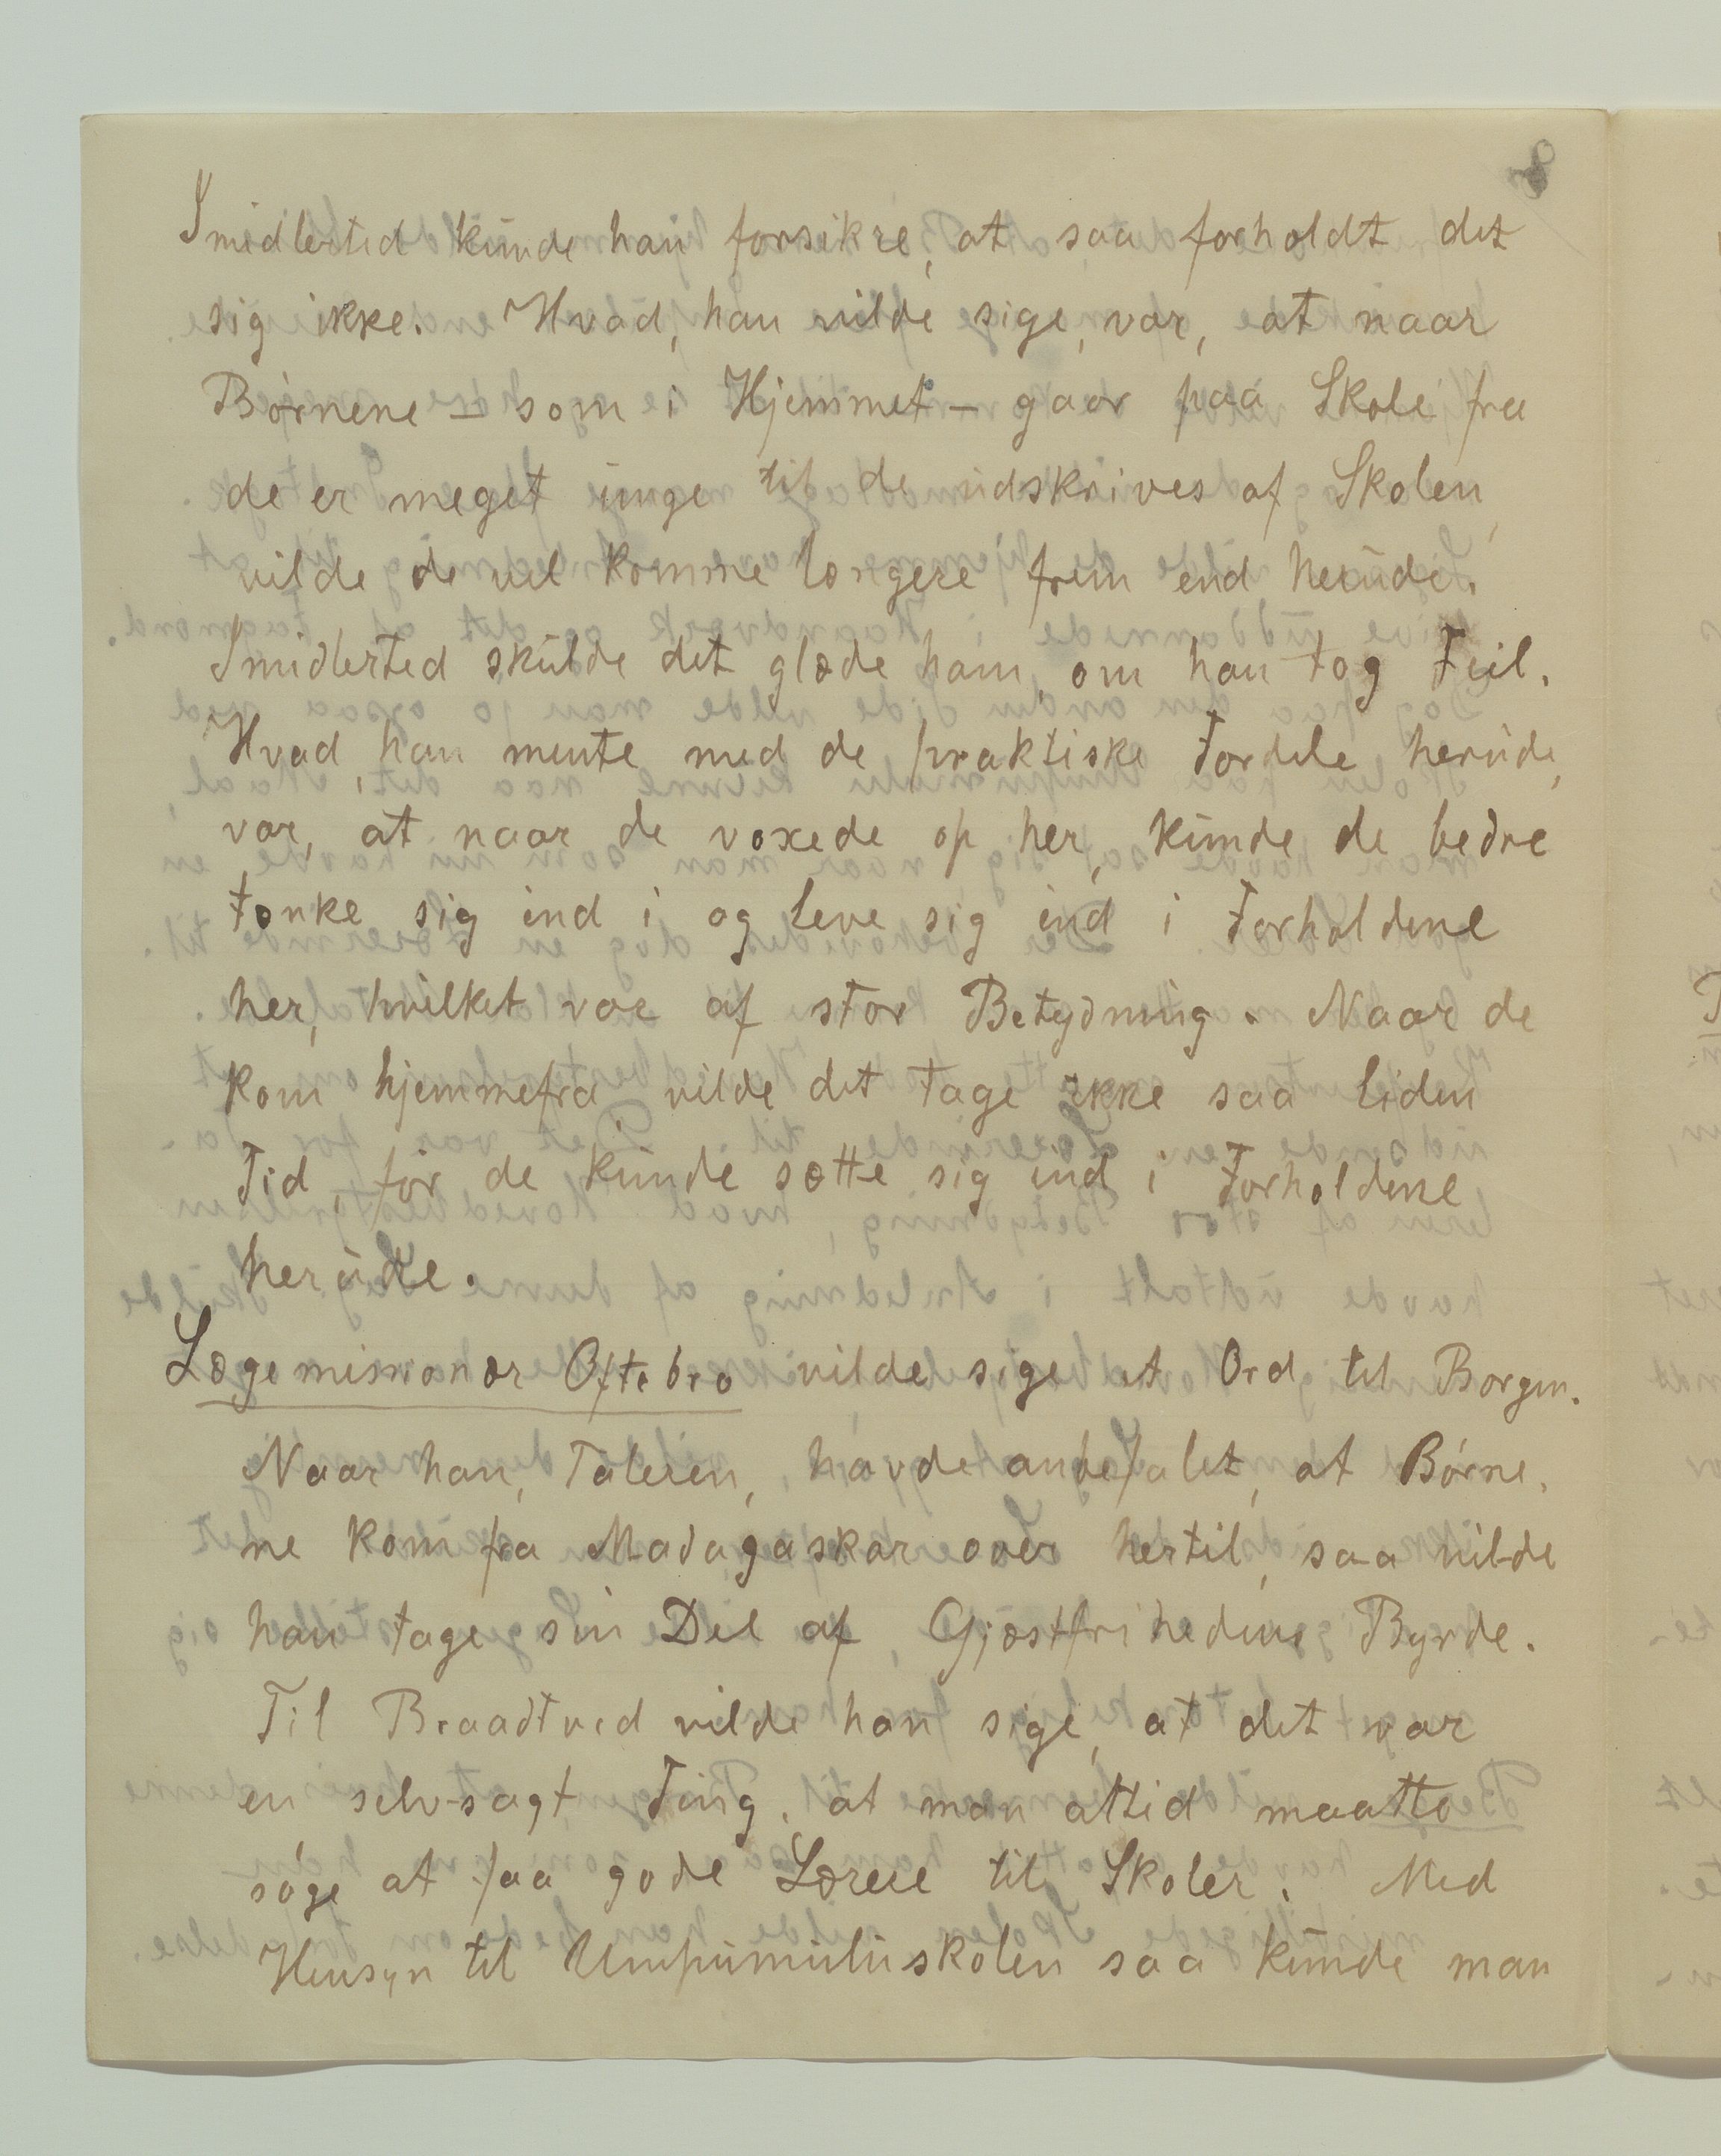 8
Imidlertid kunde han forsikre, at saa forholdt det
sig ikke. Hvad, han vilde sige, var, at naar
Børnene – som i Hjemmet – gaar paa Skole fra
de er meget unge til de udskrives af Skolen,
vilde de vel komme længere frem end herude.
Imidlertid skulde det glæde ham, om han tog Feil.
Hvad, han mente med de praktiske Fordele herude,
var, at naar de voxede op her, kunde de bedre
tænke sig ind i og leve sig ind i Forholdene
her, hvilket var af stor Betydning. Naar de
kom hjemmefra vilde det tage ikke saa liden
Tid, før de kunde sætte sig ind i Forholdene
herude.
Lægemissionær Oftebro vilde sige et Ord til Borgen.
Naar han, Taleren, havde anbefalet, at Børne-
ne kom fra Madagaskar over hertil, saa vilde
han tage sin Del af Gjæstfrihedens Byrde.
Til Braadtved vilde han sige, at det var
en selv-sagt Ting, at man altid maatte
søge at faa gode Lærere til Skoler. Med
Hensyn til Umpumuluskolen saa kunde man